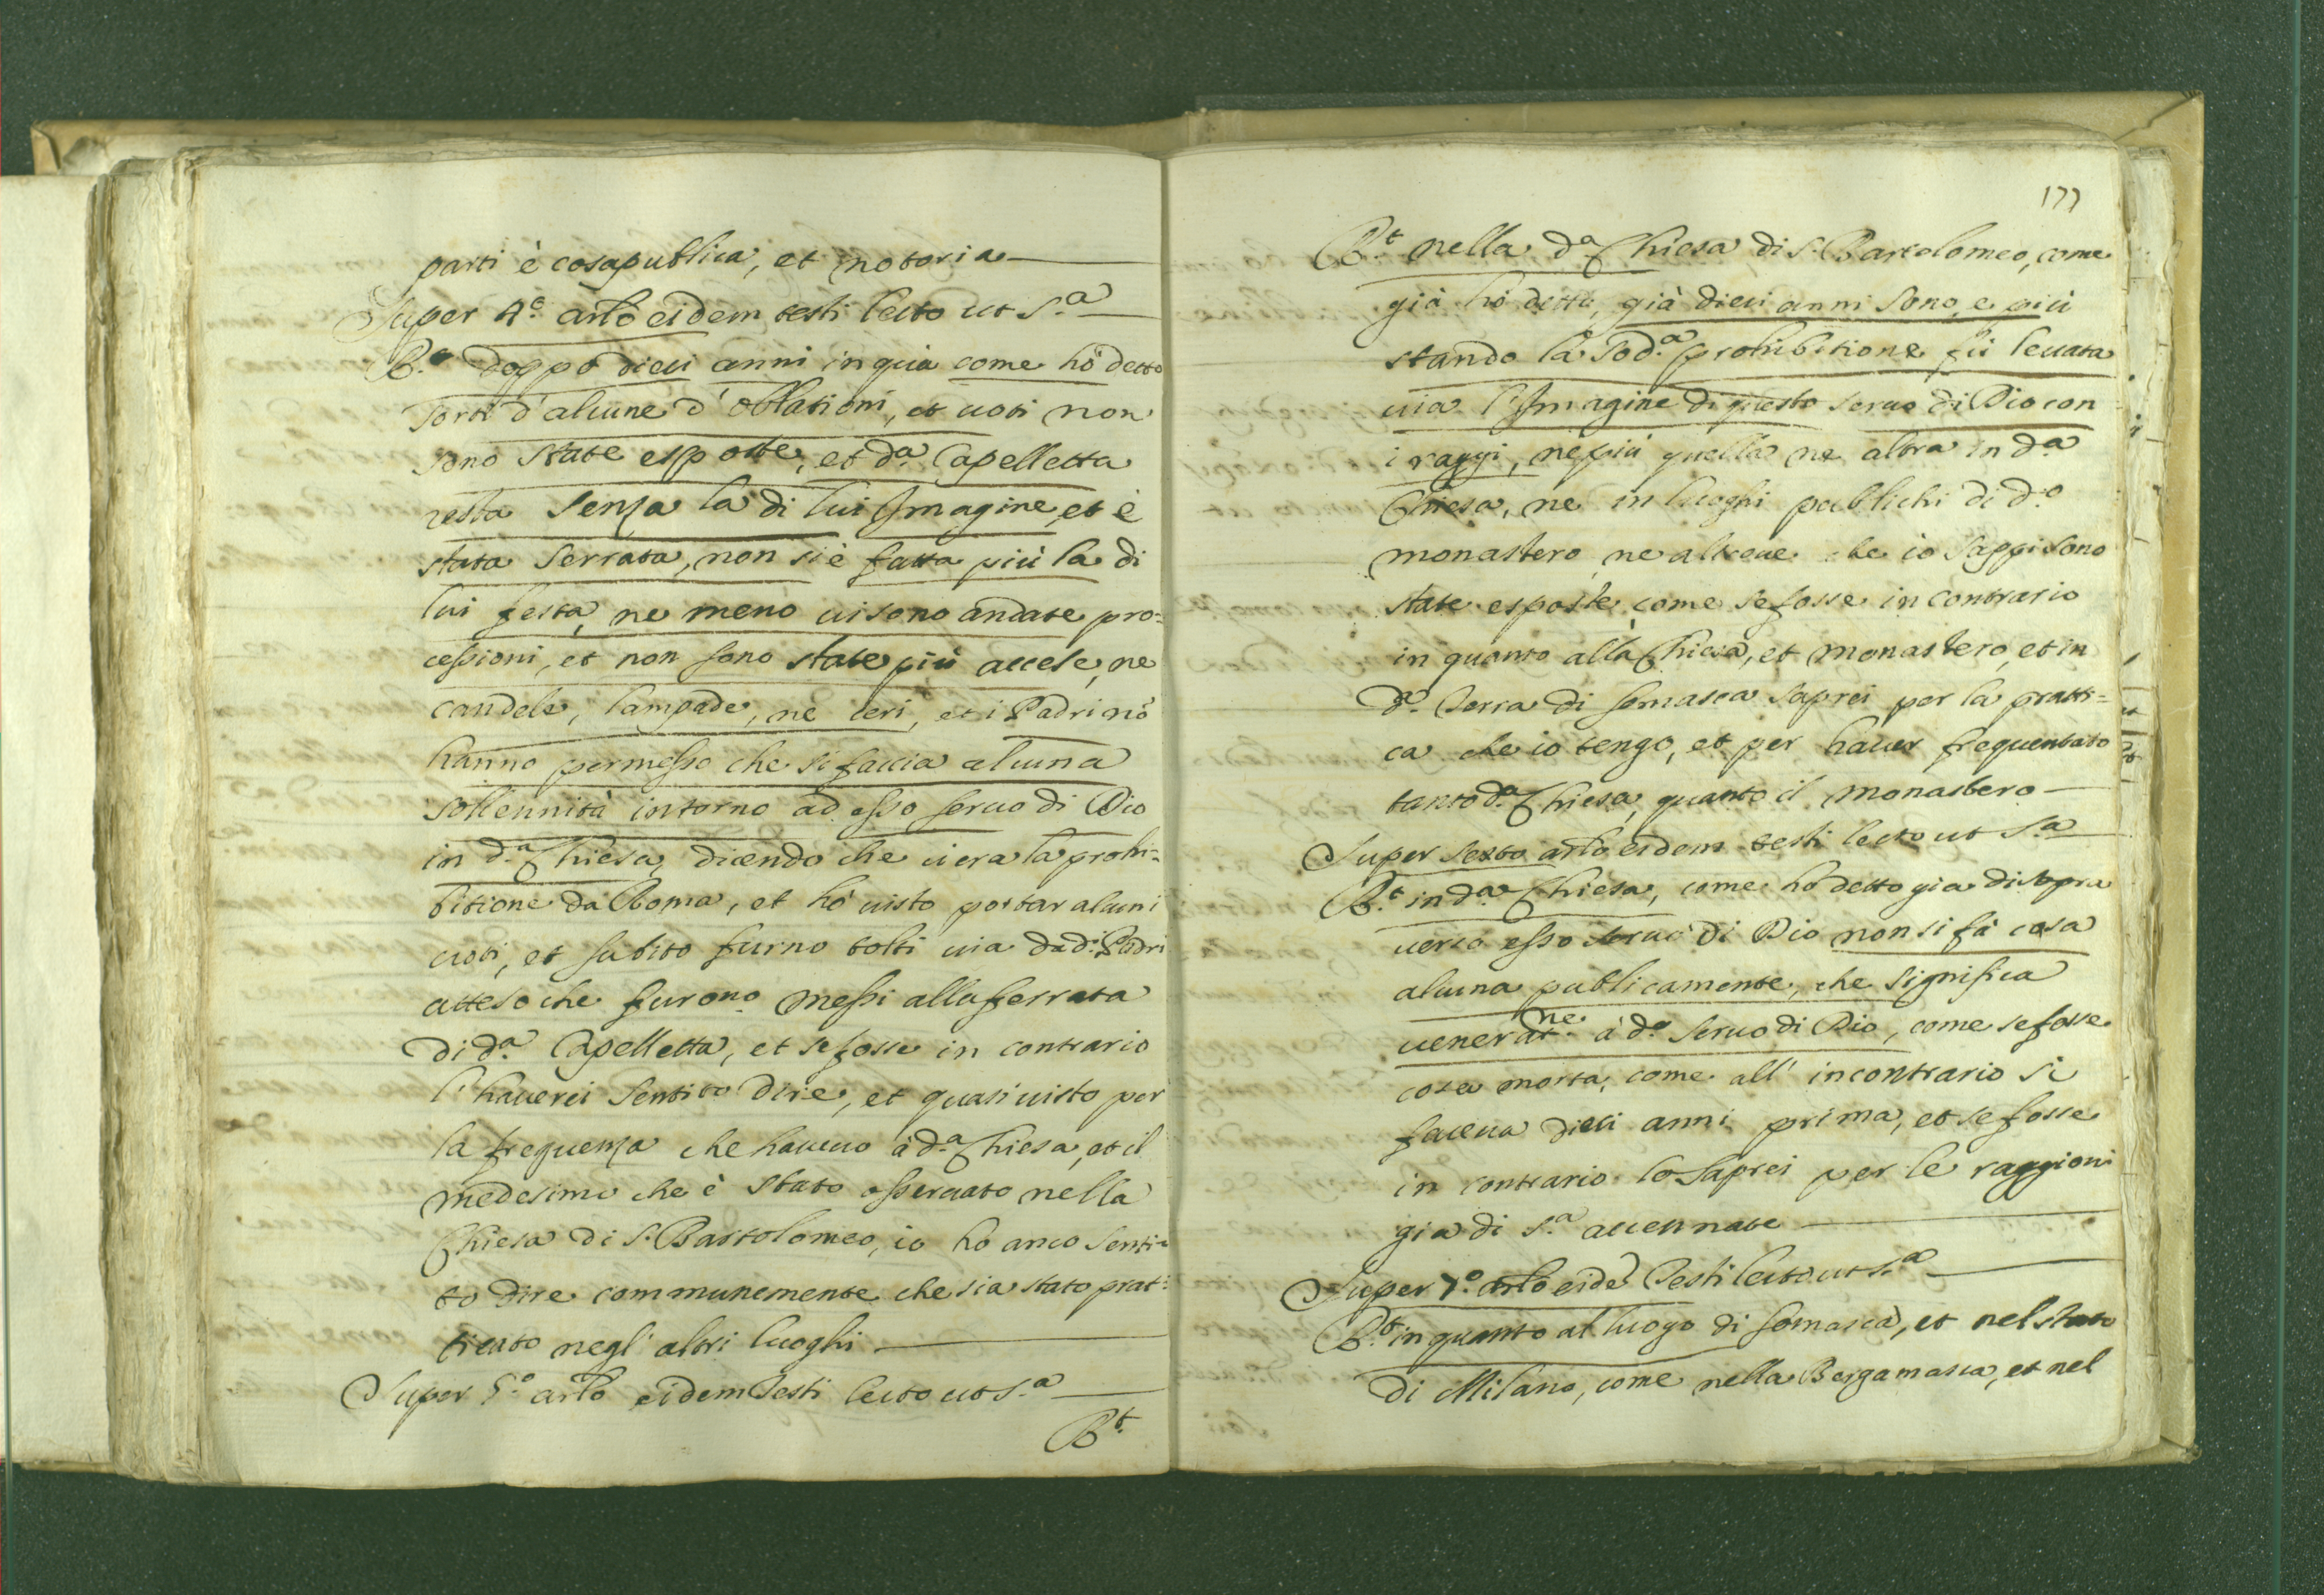 parti è cosa publica, et notoria
Super 4.º artlo eidem testi lecto ut s.ª
R.t doppo dieci anni in quà come hò detto
sorti d'alcune d'oblationi, et voti non
sono state esposte, et d.ª Capelletta
resta senza la di lui Imagine, et è
stata serrata, non si è fatta più la di
lui festa, ne meno vi sono andate pro=
cessioni, et non sono state più accese, ne
candele, lampade, ne ceri, et i Padri nõ
hanno permesso che si faccia alcuna
sollennità intorno ad esso servo di Dio
in d.ª Chiesa, dicendo che vi era la prohi=
bitione da Roma, et hò visto portar alcuni
voti, et subito furno tolti via da d.i Padri
atteso che furono messi alla ferrata
di d.ª Capelletta, et se fosse in contrario
l'haverei sentito dire, et quasi visto per
la frequenza che havevo à d.ª Chiesa, et il
medesimo che è stato osservato nella
Chiesa di S. Bartolomeo, io hò anco senti=
to dire communemente che sia stato prat=
ticato negl'altri luoghi
Super 5.º artlo eidem Testi lecto ut s.ª
R.t
177
R.t nella d.ª Chiesa di S. Bartolomeo, come
già hò detto, già dieci anni sono, e più
stando la sod.ª prohibitione fù levata
via l'Imagine di questo servo di Dio con
i raggi, ne più quella ne altra in d.ª
Chiesa, ne in luoghi publichi di d.º
monastero, ne altrove che io sappi sono
state esposte, come se fosse in contrario
in quanto alla Chiesa, et monastero, et in
d.ª Terra di Somasca saprei per la pratti=
ca che io tengo, et per haver frequentato
tanto d.ª Chiesa, quanto il monastero
Super sexto artlo eidem testi lecto ut s.ª
R.t in d.ª Chiesa, come hò detto già di sopra
verso esso servo di Dio non si fà cosa
alcuna publicamente, che significa
venerat.ne à d.º servo di Dio, come se fosse
cosa morta, come all'incontrario si
faceva dieci anni prima, et se fosse
in contrario lo saprei per le raggioni
già di s.ª accennate
Super 7.º artlo eidẽ Testi lecto ut s.ª
R.t in quanto al luogo di Somasca, et nel stato
di Milano, come nella Bergamasca, et nel